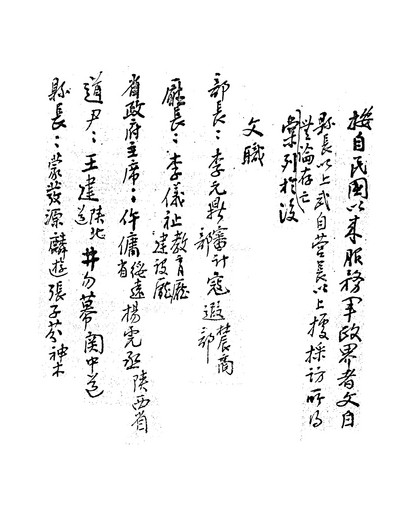 按自民國以來服務軍政界者文自
縣長以上武自營長以上據採訪所得
無論存亡
彙列於後
文職
部長：李元鼎審計部寇遐農商部
廳長：李儀祉教育廳建設廳
省政府主席：仵傭綏遠省楊虎丞陝西省
道尹：王建陝北道井勿幕關中道
縣長：蒙發源麟遊張子芬神木